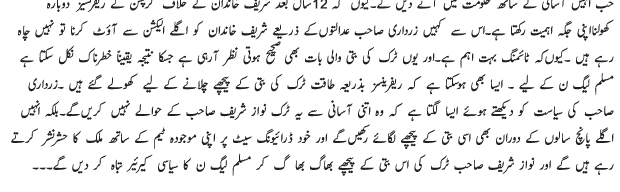 جب انہیں آسانی کے ساتھ حکومت میں آنے دیں گے۔کیوں کہ 12سال بعد شریف خاندان کے خلاف کرپشن کے ریفرنسیز دوبارہ
کھولنااپنی جگہ اہمیت رکھتا ہے۔اس سے کہیں زرداری صاحب عدالتوں کے ذریعے شریف خاندان کو اگلے الیکشن سے آؤٹ کرنا تو نہیں چاہ
رہے ہیں ۔کیوں کہ ٹائمنگ بہت اہم ہے۔اور یوں ٹرک کی بتی والی بات بھی صحیح ہوتی نظر آرہی ہے جسکا نتیجہ یقیناً خطرناک نکل سکتا ہے
مسلم لیگ ن کے لیے ۔ ایسا بھی ہوسکتا ہے کہ ریفرینسز بذریعہ طاقت ٹرک کی بتی کے پیچھے چلانے کے لیے کھولے گئے ہیں ۔زرداری
صاحب کی سیاست کو دیکھتے ہوئے ایسا لگتا ہے کہ وہ اتنی آسانی سے یہ ٹرک نواز شریف صاحب کے حوالے نہیں کریں گے۔بلکہ انہیں
اگلے پانچ سالوں کے دوران بھی اسی بتی کے پیچھے لگائے رکھیں گے اور خود ڈرائیونگ سیٹ پر اپنی موجودہ ٹیم کے ساتھ ملک کا حشرنشر کرتے
رہے ہیں گے اور نواز شریف صاحب ٹرک کی اس بتی کے پیچھے بھاگ بھا گ کر مسلم لیگ ن کا سیاسی کیرئیر تباہ کر دیں گے۔۔۔